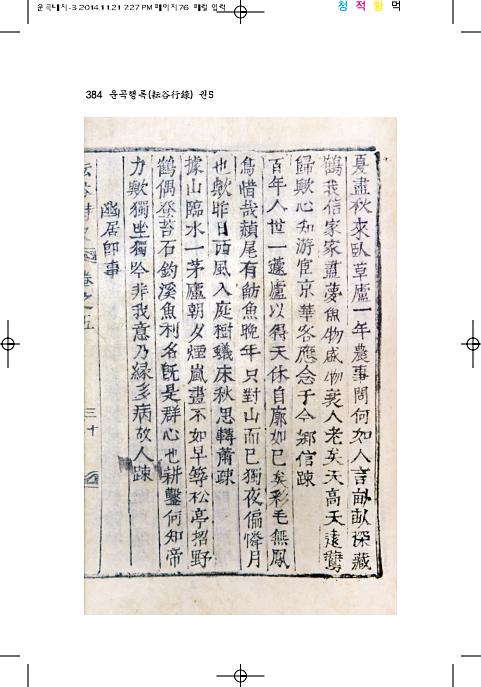 2014.11.21 7:27 PM 페이지76
청 적 황 먹
384 운곡행록(耘谷行錄) 권5
夏盡秋來臥草廬一年農事問何如人言畝畝深藏
鶴我信家家肅夢魚物盛物衰人老矣天高天遠鴈
歸歟心知游宦京華客應念于今鄉信踈
百年人世一蘧廬以得天休自廓如已矣彩毛無鳳
鳥惜哉頳尾有魴魚晚年只對山而已獨夜偏憐月
也歟昨日西風入庭樹蟻床秋思轉蕭踈
據山臨水一茅廬朝夕煙嵐盡不如早等松亭招野
鶴偶登苔石釣溪魚利名旣是群心也耕鑿何知帝
力歟獨坐獨吟非我意乃緣多病故人踈
幽居卽事
卷之五 三十